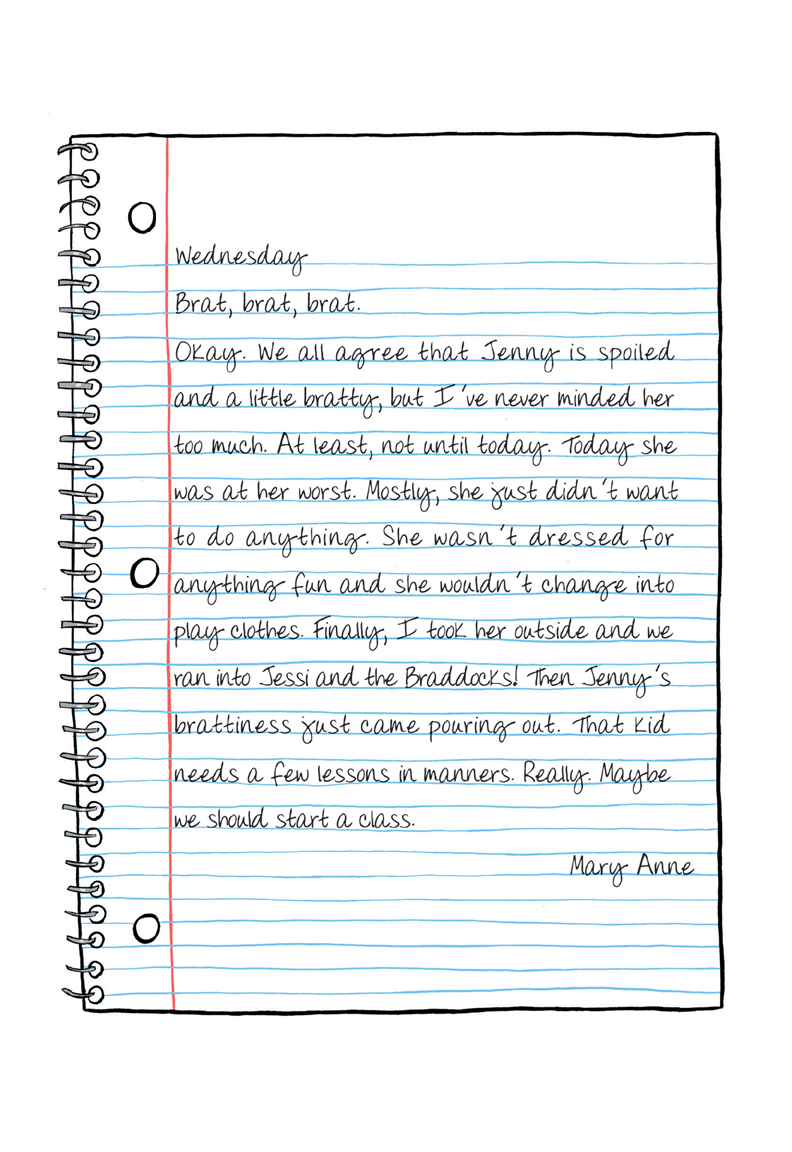 Wednesday
Brat, brat, brat.
Okay. We all agree that Jenny is spoiled
and a little bratty, but I've never minded her
too much. At least, not until today. Today she
was at her worst. Mostly, she just didn't want
to do anything. She wasn't dressed for
anything fun and she wouldn't change into
play clothes. Finally, I took her outside and we
ran into Jessi and the Braddocks! Then Jenny's
brattiness just came pouring out. That kid
needs a few lessons in manners. Really. Maybe
we should start a class.
Mary Anne